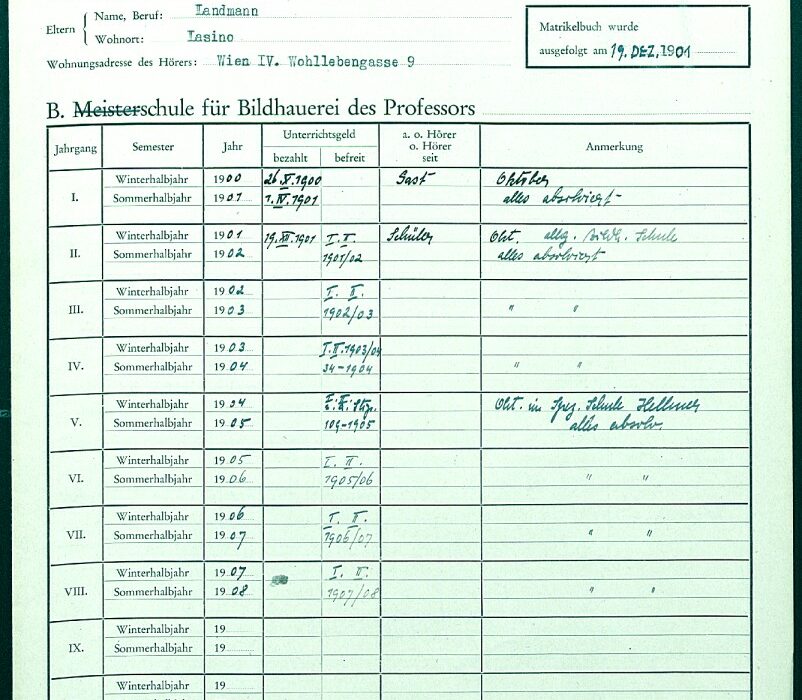 Eltern
Name, Beruf: Landmann
Wohnort: Lasino
Wohnungsadresse des Hörers: Wien IV. Wohllebengasse 9
Matrikelbuch wurde
ausgefolgt am 19. DEZ. 1901
B. Meisterschule für Bildhauerei des Professors
Jahrgang Semester Jahr Unterrichtsgeld a. o. Hörer Anmerkung
o. Hörer
bezahlt befreit seit
I. Winterhalbjahr 1900 26.X.1900 Gast Oktober
Sommerhalbjahr 1901 1.IV.1901 alles absolviert
II. Winterhalbjahr 1901 19.XII.1901 I. II. Schüler Okt. allg. Bildh. Schule
Sommerhalbjahr 1902 1901/02 alles absolviert
III. Winterhalbjahr 1902 I. II.
Sommerhalbjahr 1903 1902/03 " "
IV. Winterhalbjahr 1903 I.II.1903/04
Sommerhalbjahr 1904 34-1904 " "
V. Winterhalbjahr 1904 I. II. Okt. in Spez. Schule Hellmer
Sommerhalbjahr 1905 109-1905 alles absolv.
VI. Winterhalbjahr 1905 I. II.
Sommerhalbjahr 1906 1905/06 " "
VII. Winterhalbjahr 1906 I. II.
Sommerhalbjahr 1907 1906/07 " "
VIII. Winterhalbjahr 1907 I. II.
Sommerhalbjahr 1908 1907/08 " "
IX. Winterhalbjahr 19
Sommerhalbjahr 19
Winterhalbjahr 19